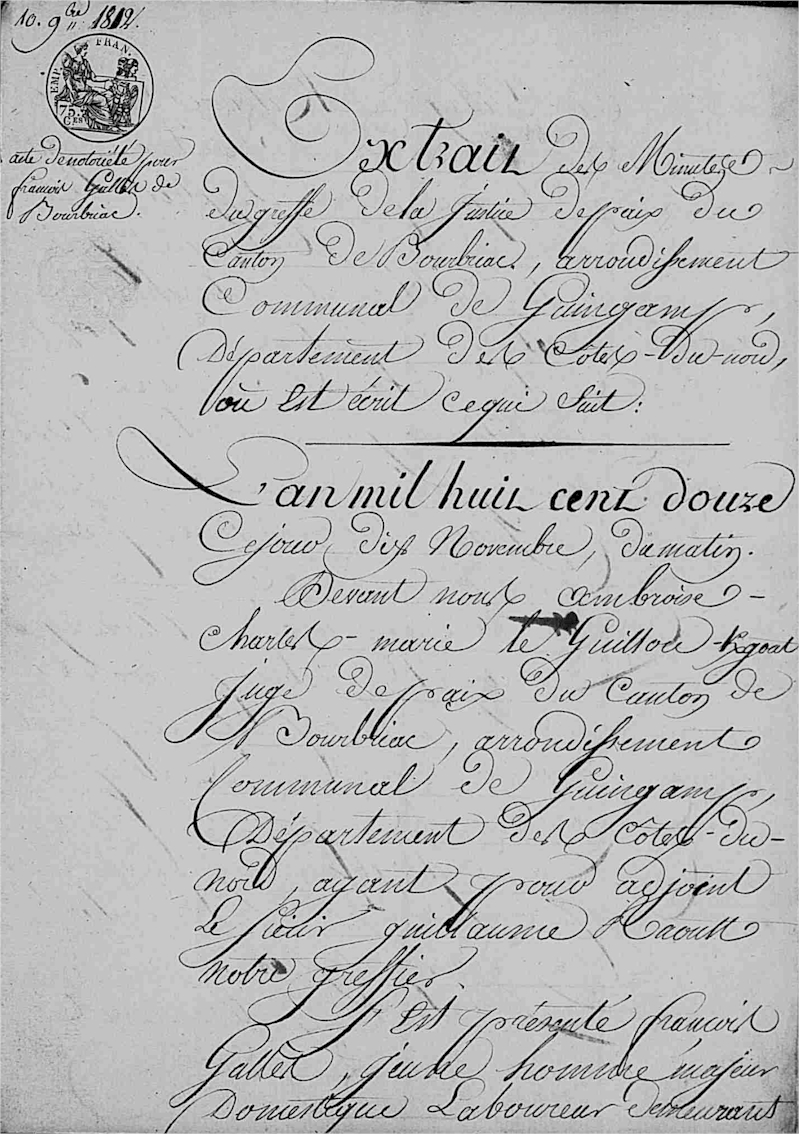 10. 9bre 1812.
EMP. FRAN.
75.
CES
acte de notoriété pour
francois Galles de
Bourbriac.
Extrait des Minutes
du greffe de la justice de paix du
Canton de Bourbriac, arrondissement
Communal de Guingamp,
Département des Côtes-du-nord,
où Est écrit ce qui Suit:
L'an mil huit cent douze
Ce jour dix Novembre, du matin.
Devant nous ambroise-
Charles-marie le Guillou-Kgoat
Juge de paix du Canton de
Bourbriac, arrondissement
Communal de Guingamp,
Département des Côtes-du-
nord, ayant pour adjoint
Le sieur guillaume Raoult
notre greffier.
S'Est présenté francois
Galles, jeune homme majeur
Domestique Laboureur demeurant